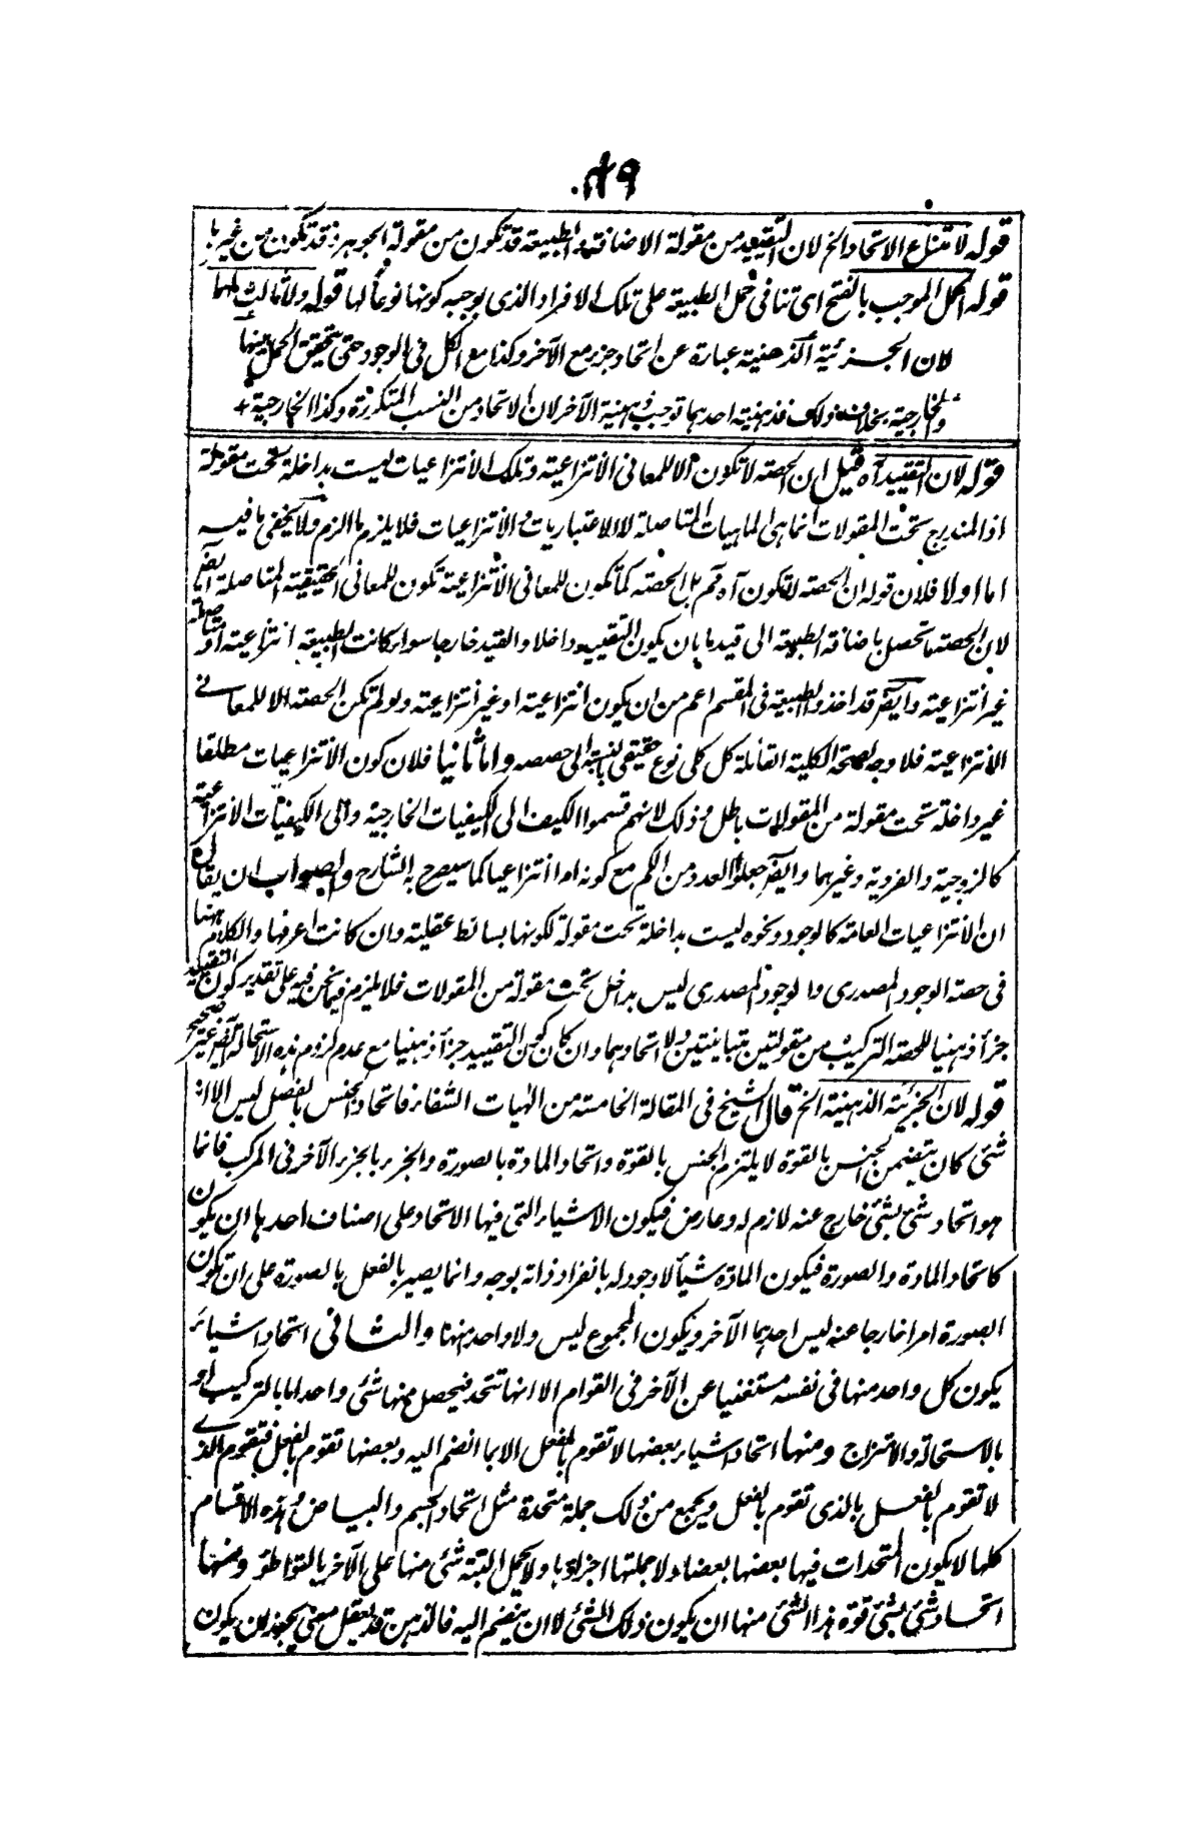 قوله لامتناع الاتحاد الخ لان التقييد من مقولة الاضافة والطبيعة قد تكون من مقولة الجوهر وقد تكون من غيرها
قوله الحمل الموجب بالفتح اى تنافى حمل الطبيعة على تلك الافراد الذى يوجبه كونها نوعاً لها قوله ولا ثالث لهما
لان الجزئية الذهنية عبارة عن اتحاد جزء مع الآخر وكذا مع الكل فى الوجود حتى يتحقق الحمل بينها
والخارجية بخلاف ذلك فذهنية احدهما توجب ذهنية الآخر لان الاتحاد من النسب المتكررة وكذا الخارجية +
قوله لان التقييد آه قيل ان الحصة لا تكون الا للمعانى الانتزاعية وتلك الانتزاعيات ليست بداخلة تحت مقولة
اذ المندرج تحت المقولات انما هى الماهيات المتاصلة لا الاعتباريات والانتزاعيات فلا يلزم ما الزم ولا يخفى ما فيه
اما اولا فلان قوله ان الحصة لا تكون آه ثم بل الحصة كما تكون للمعانى الانتزاعية تكون للمعانى الحقيقية المتاصلة ايضا
لان الحصة ما تحصل باضافة الطبيعة الى قيد ما بان يكون التقييد داخلا والقيد خارجا سواء كانت الطبيعة انتزاعية او متاصلة
غير انتزاعية وايضا قد اخذ والطبيعة فى المقسم اعم من ان يكون انتزاعية او غير انتزاعية ولو لم تكن الحصة الا للمعانى
الانتزاعية فلا وجه لصحة الكلية القائلة كل كلى نوع حقيقى بالنسبة الى حصصه واما ثانيا فلان كون الانتزاعيات مطلقا
غير داخلة تحت مقولة من المقولات باطل وذلك لانهم قسموا الكيف الى الكيفيات الخارجية والى الكيفيات الانتزاعية
كالزوجية والفردية وغيرهما وايضا جعلوا العدد من الكم مع كونه امرا انتزاعيا كما سيصرح به الشارح والصواب ان يقال
ان الانتزاعيات العامة كالوجود ونحوه ليست بداخلة تحت مقولة لكونها بسائط عقلية وان كانت اعراضا والكلام ههنا
فى حصة الوجود المصدرى والوجود المصدرى ليس بداخل تحت مقولة من المقولات فلا يلزم فيما نحن فيه على تقدير كون التقييد
جزأ ذهنيا للحصة التركيب من مقولتين متباينتين ولا اتحادهما وان كان كون التقييد جزأ ذهنيا مع عدم لزوم هذه الاستحالة ايضا غير صحيح
قوله لان الجزئية الذهنية الخ قال الشيخ فى المقالة الخامسة من الٰهيات الشفاء فاتحاد الجنس بالفصل ليس الا انه
شئ كان يتضمن الجنس بالقوة لا يلتزم الجنس بالقوة واتحاد المادة بالصورة والجزء بالجزء الآخر فى المركب فانما
هو اتحاد شئ بشئ خارج عنه لازم له وعارض فيكون الاشياء التى فيها الاتحاد على اصناف احدها ان يكون
كاتحاد المادة والصورة فيكون المادة شيأ لا وجود له بانفراد ذاته بوجه وانما يصير بالفعل بالصورة على ان تكون
الصورة امرا خارجا عنه ليس احدهما الآخر ويكون المجموع ليس ولا واحد منهما والثانى اتحاد اشياء
يكون كل واحد منها فى نفسه مستغنيا عن الآخر فى القوام الا انها تتحد فيحصل منها شئ واحد اما بالتركيب او
بالاستحالة والامتزاج ومنها اتحاد اشياء بعضها لا تقوم بالفعل الا بما انضم اليه وبعضها تقوم بالفعل فتقوم الذى
لا تقوم بالفعل بالذى تقوم بالفعل ويجمع من ذلك جملة متحدة مثل اتحاد الجسم والبياض وهذه الاقسام
كلها لا يكون المتحدات فيها بعضها بعضا ولا جملتها اجزاؤها ولا يحمل البتة شئ منها على الآخر بالتواطؤ ومنها
اتحاد شئ بشئ قوة هذا الشئ منها ان يكون ذلك الشئ لا ان ينضم اليه فالذهن قد يعقل معنى يجوز ان يكون